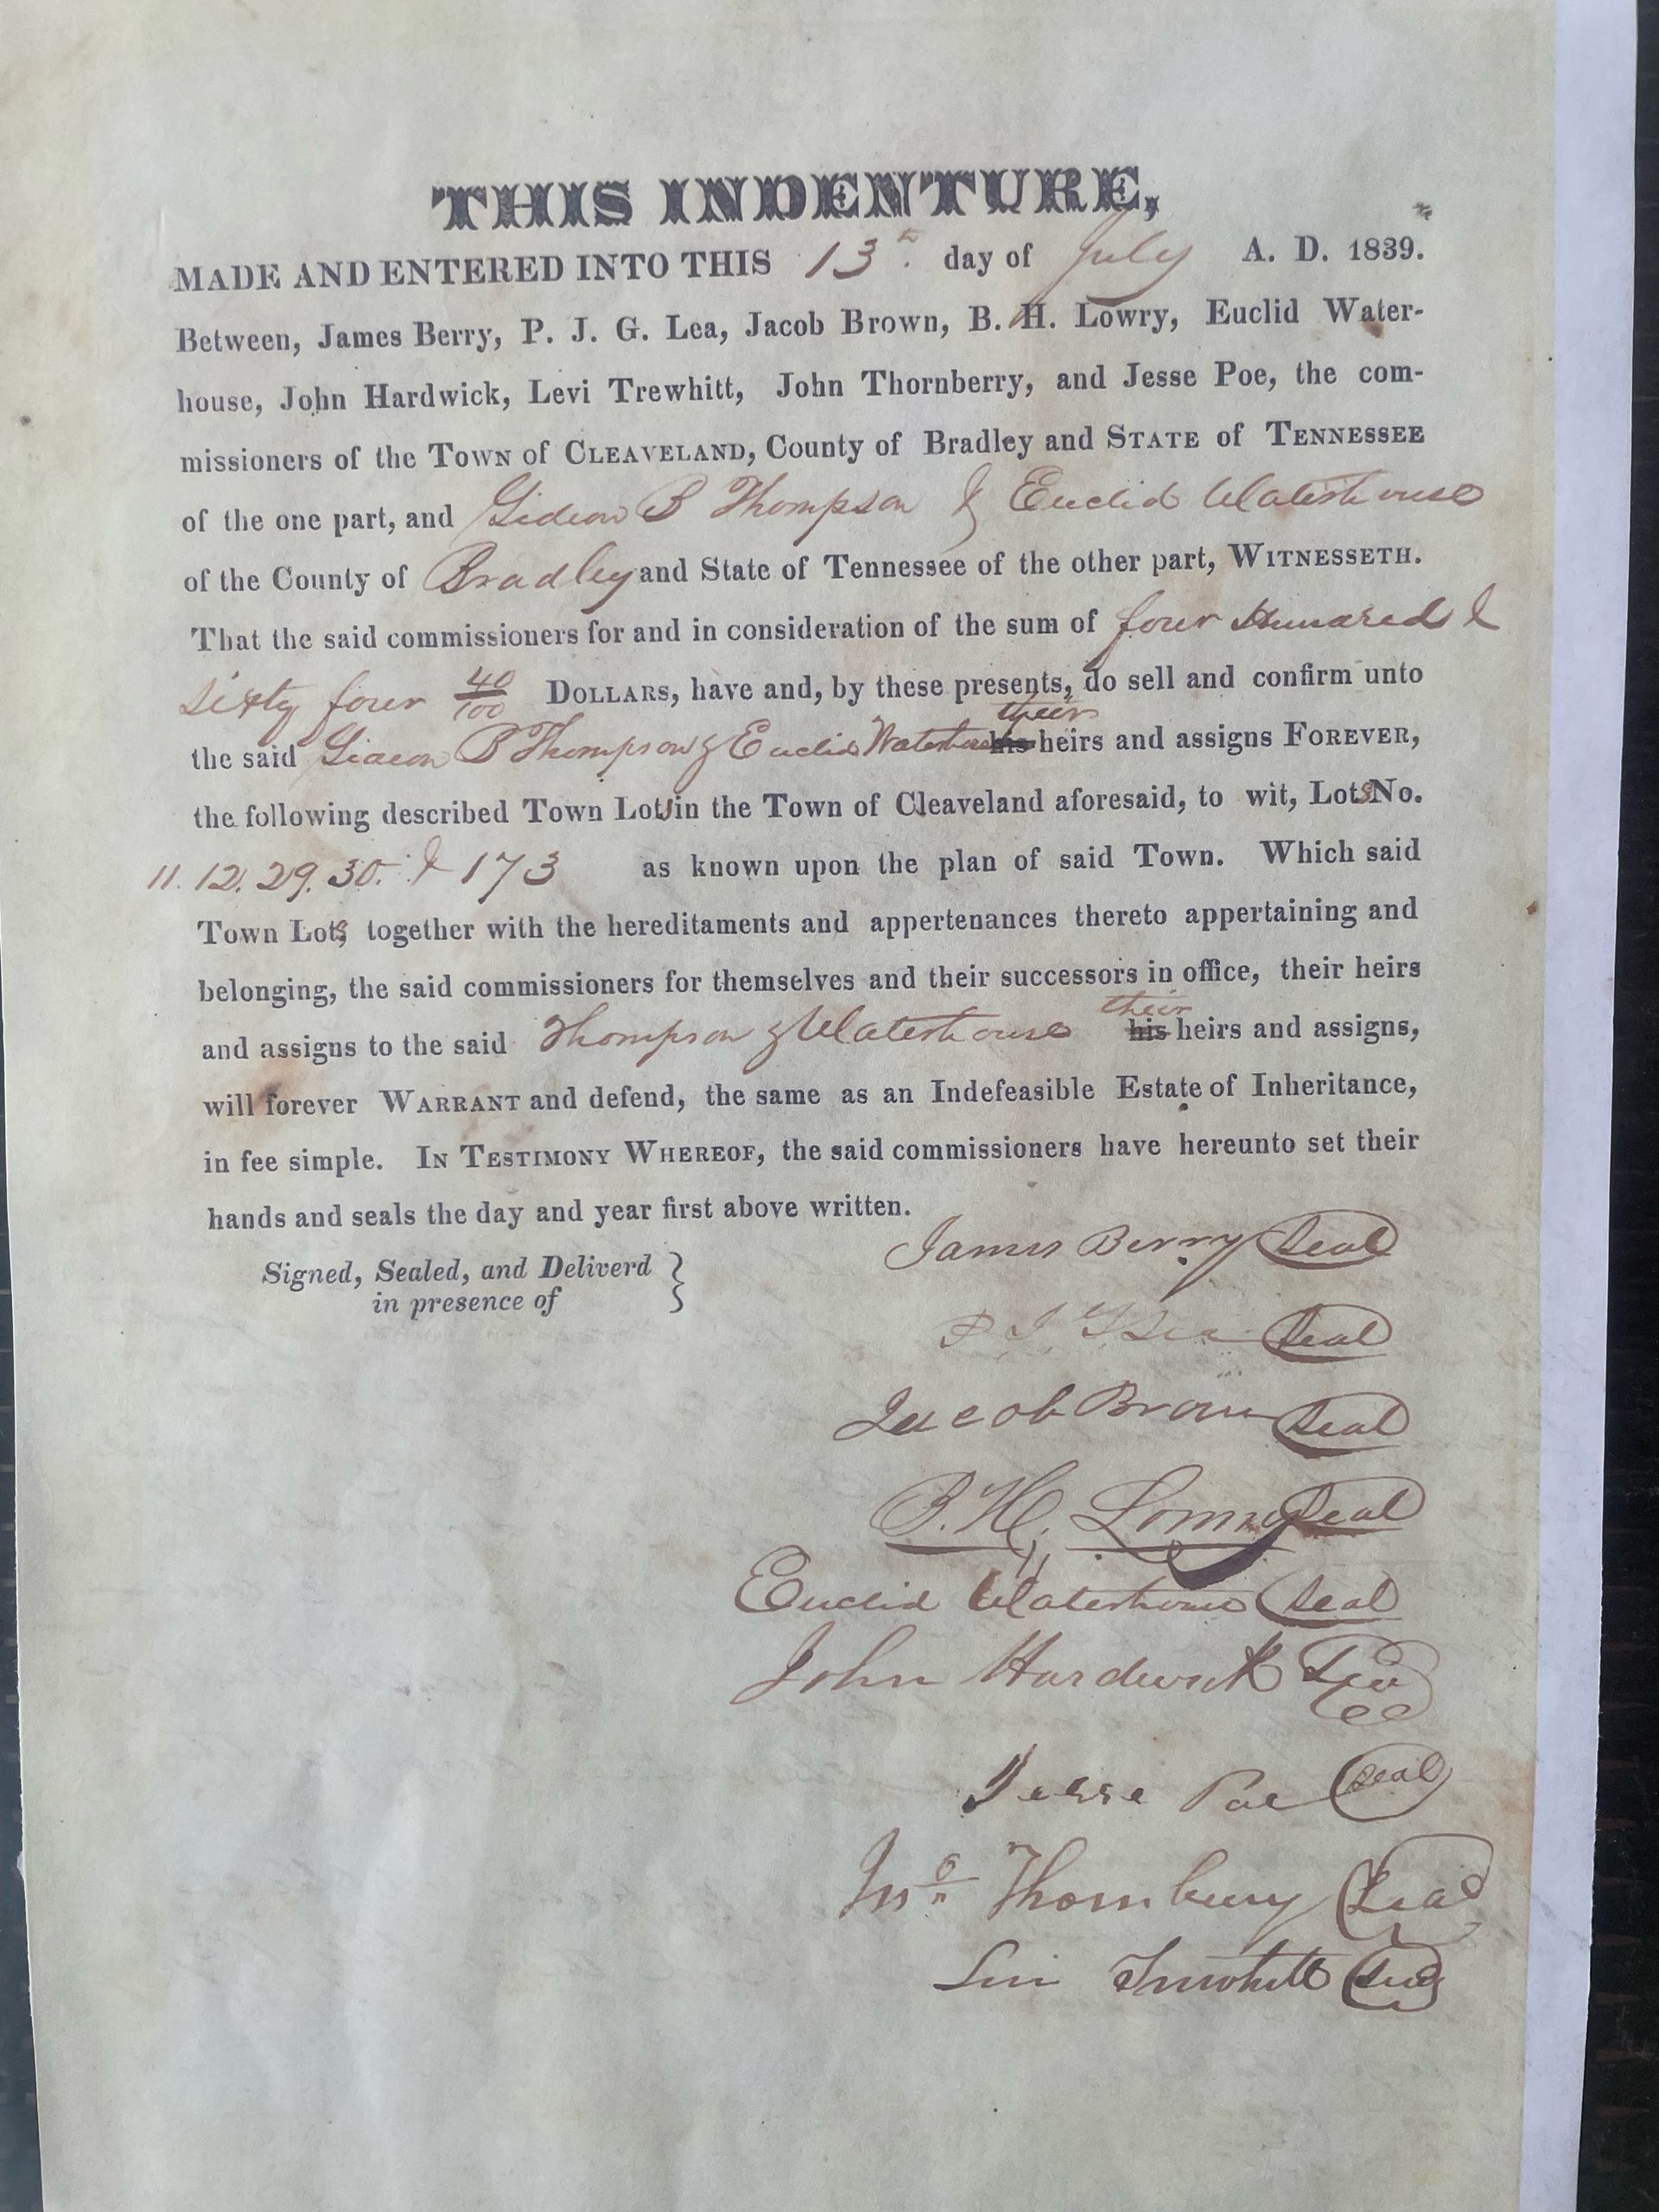 THIS INDENTURE,
MADE AND ENTERED INTO THIS 13th. day of July A. D. 1839.
Between, James Berry, P. J. G. Lea, Jacob Brown, B. H. Lowry, Euclid Water-
house, John Hardwick, Levi Trewhitt, John Thornberry, and Jesse Poe, the com-
missioners of the Town of Cleaveland, County of Bradley and State of Tennessee
of the one part, and Gideon B Thompson & Euclid Waterhouse
of the County of Bradley and State of Tennessee of the other part, Witnesseth.
That the said commissioners for and in consideration of the sum of four Hundred &
sixty four 40/100 Dollars, have and, by these presents, do sell and confirm unto
their
the said Gideon B Thompson & Euclid Waterhouse his heirs and assigns Forever,
the following described Town Lots in the Town of Cleaveland aforesaid, to wit, Lots No.
11. 12. 29. 30. & 173 as known upon the plan of said Town. Which said
Town Lots, together with the hereditaments and appertenances thereto appertaining and
belonging, the said commissioners for themselves and their successors in office, their heirs
their
and assigns to the said Thompson & Waterhouse his heirs and assigns,
will forever Warrant and defend, the same as an Indefeasible Estate of Inheritance,
in fee simple. In Testimony Whereof, the said commissioners have hereunto set their
hands and seals the day and year first above written.
Signed, Sealed, and Deliverd }
in presence of
James Berry Seal
P J G Lea Seal
Jacob Brown Seal
B. H. Lowry Seal
Euclid Waterhouse Seal
John Hardwick Seal
Jesse Poe Seal
Jno Thornbury Seal
Levi Trewhitt Seal